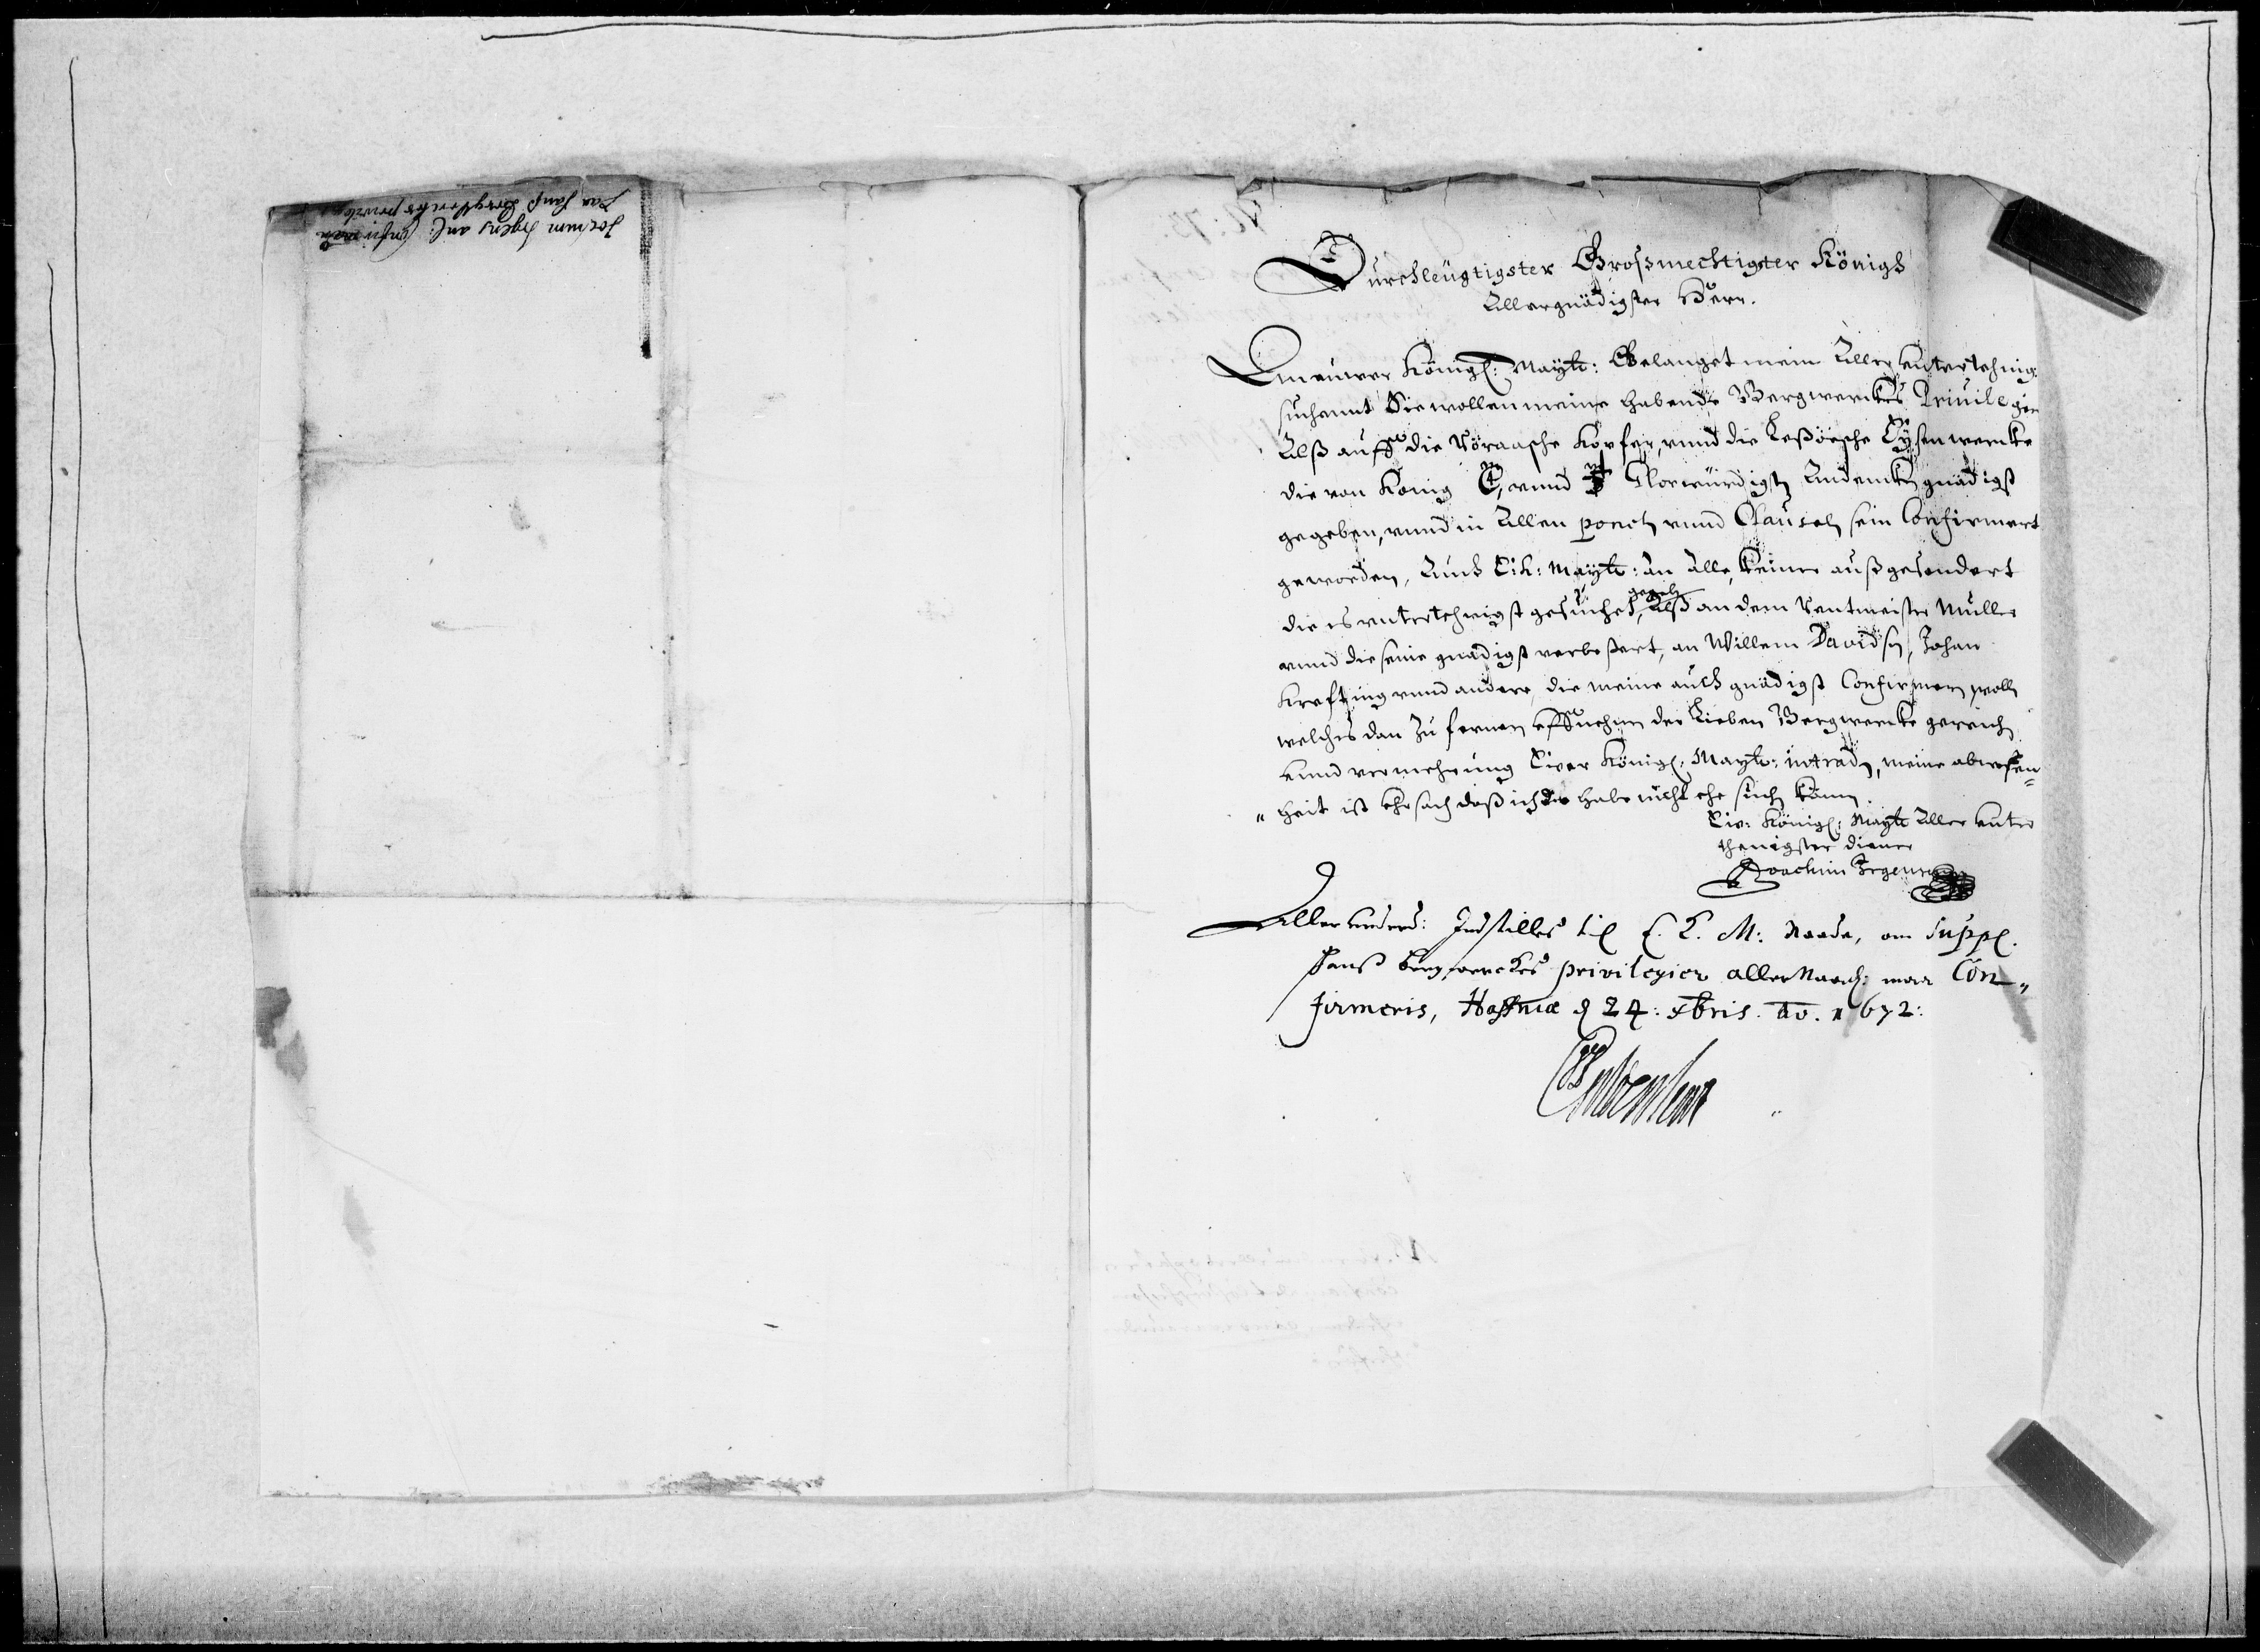 Jochum Irgens anl: Confirmation
paa hans Bergverckes privileg:
Durchleügtigster Grosmechtigster Königh
Allergnädigster Herr.
An euwer Königl: Maytt: Gelanget mein Aller untertehnig:
suchennt Sie wollen meine habende Bergwerckes Priuilegien
Alß auff die Röraasche Kopfer, unnd die Leßöesche Eysenwercke
die von König C4, unnd F3 Glorwürdigst Andencken gnädigst
gegeben, unnd in Allen poncten unnd Clauseln sein Confirmert
geworden, Auch E: K: Maytt: an Alle, keiner außgesondert
die es untertehnigst gesuchet, gegeben Alß an dem Rentmeister Müller
unnd die seine gnädigst verbessert, an Willem Davidsen, Johan
Krefting unnd andere, die meine auch gnädigst Confirmeren wollen
welches dan zu fernern auffnehmen der Lieben Bergwercke gereichen
unnd vermehrung Euer Königl: Maytt: intraden, meine abwesen=
"heit ist uhrsach daß ich die habe nicht ehe suchen können.
Eiw: Königl: Maytt Aller unter
thenigster diener
Joachim Irgens
Aller underd: Indstilles til E. K. M: Naade, om Suppl.
hans bergwerckes privilegier aller Naadl: maa Con„
firmeris, Haffniæ d 24: xbris. Ao. 1672: